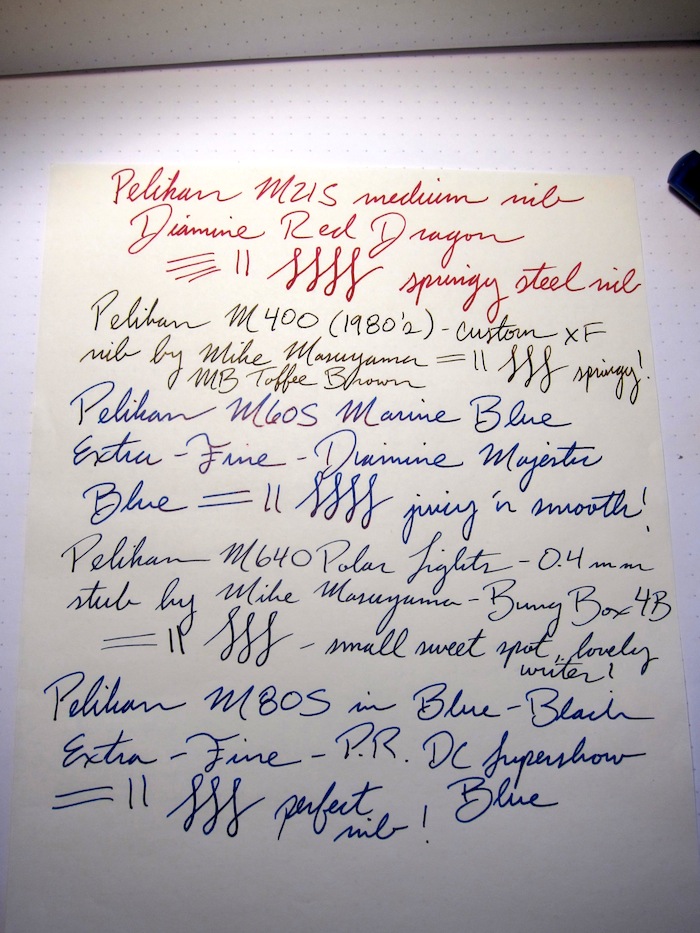 Pelikan M215 medium nib
Diamine Red Dragon
springy steel nib
Pelikan M400 (1980's) - custom XF
nib by Mike Masuyama springy!
MB Toffee Brown
Pelikan M605 Marine Blue
Extra-Fine - Diamine Majestic
Blue juicy 'n smooth!
Pelikan M640 Polar Lights - 0.4mm
stub by Mike Masuyama - Bung Box 4B
- small sweet spot, lovely
writer!
Pelikan M805 in Blue-Black
Extra-Fine - P.R. DC Supershow
Blue
perfect
nib!